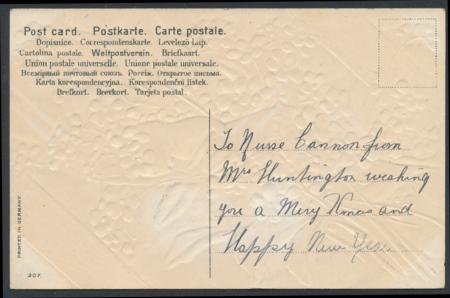 Post card. Postkarte. Carte postale.
Dopisnice. Correspondenskarte. Levelező-Lap.
Cartolina postale. Weltpostverein. Briefkaart.
Union postale universelle. Unione postale universale.
Всемірный почтовый союзъ. Россія. Открытое письмо.
Karta korespondencyjna. Korespondenční listek.
Brefkort. Brevkort. Tarjeta postal
To Nurse Cannon from
Mrs Huntington wishing
you a Merry Xmas and
Happy New Year
PRINTED IN GERMANY.
207.